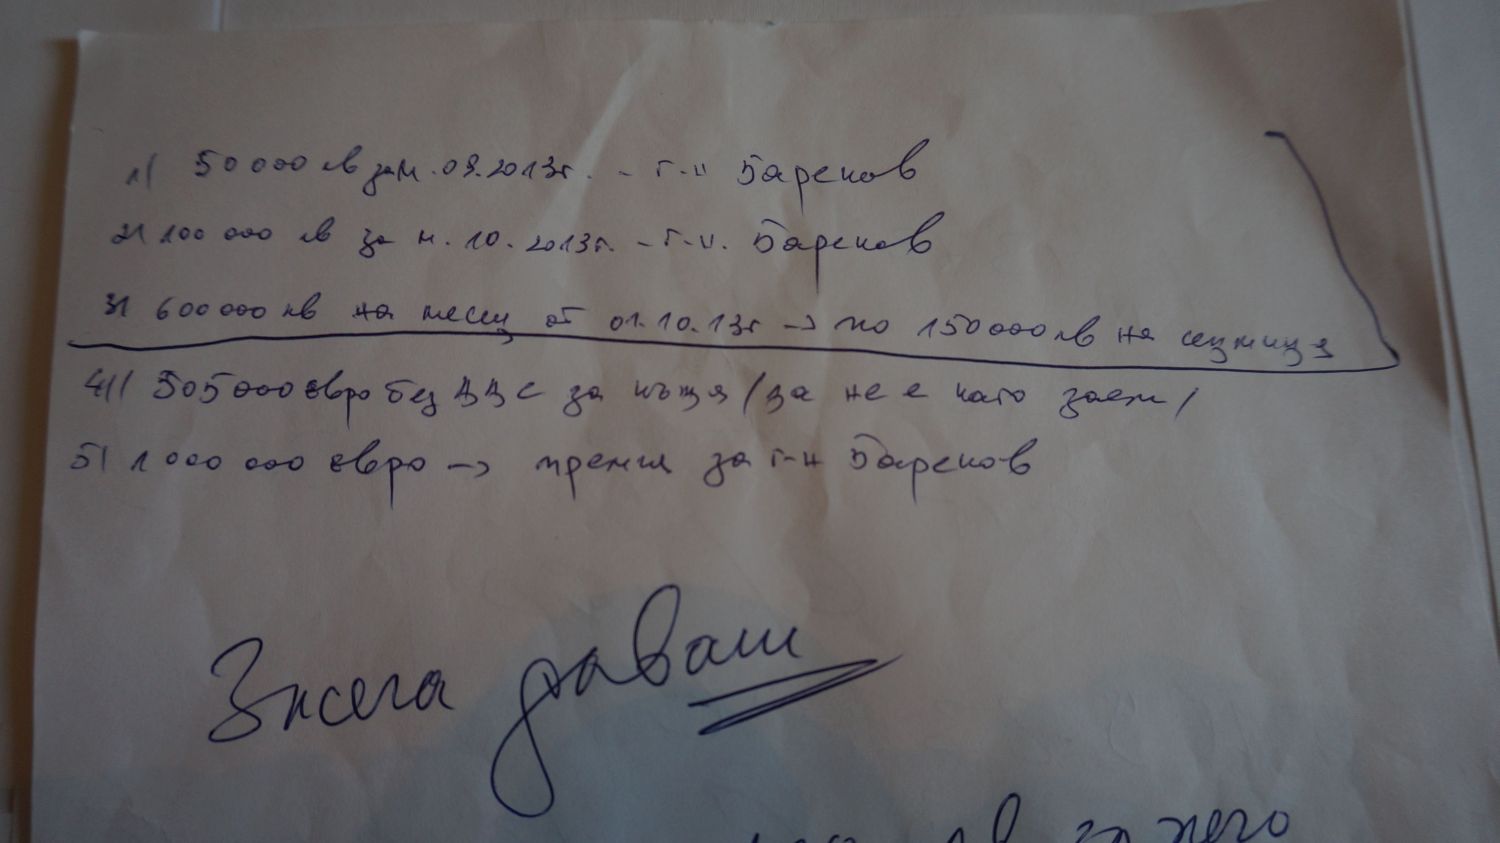 1/ 50 000 лв за м. 09.2013г. - г-н Бареков
2/ 100 000 лв за м. 10.2013г. - г-н. Бареков
3/ 600 000 лв на месец от 01.10.13г → по 150 000 лв на седмица
4/ 505 000 евро без ДДС за къща /да не е като заем/
5/ 1 000 000 евро → премия за г-н Бареков
Засега даваш
лв за него